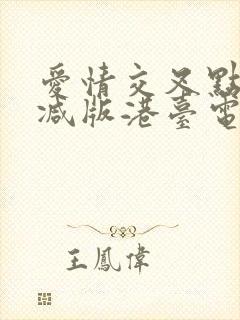 愛情交叉點
減版港臺電
王鳳偉